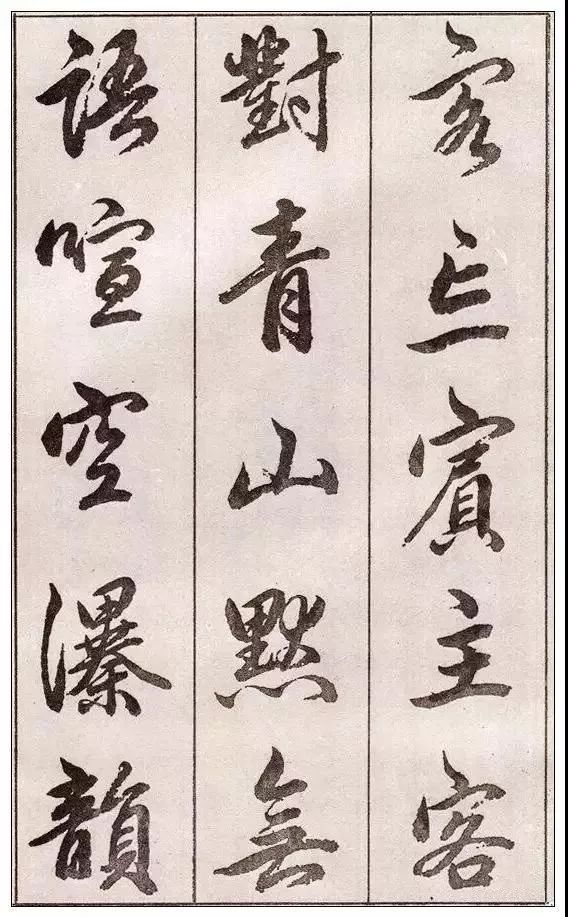 亡賓主客
對青山默無
語喧空瀑韻